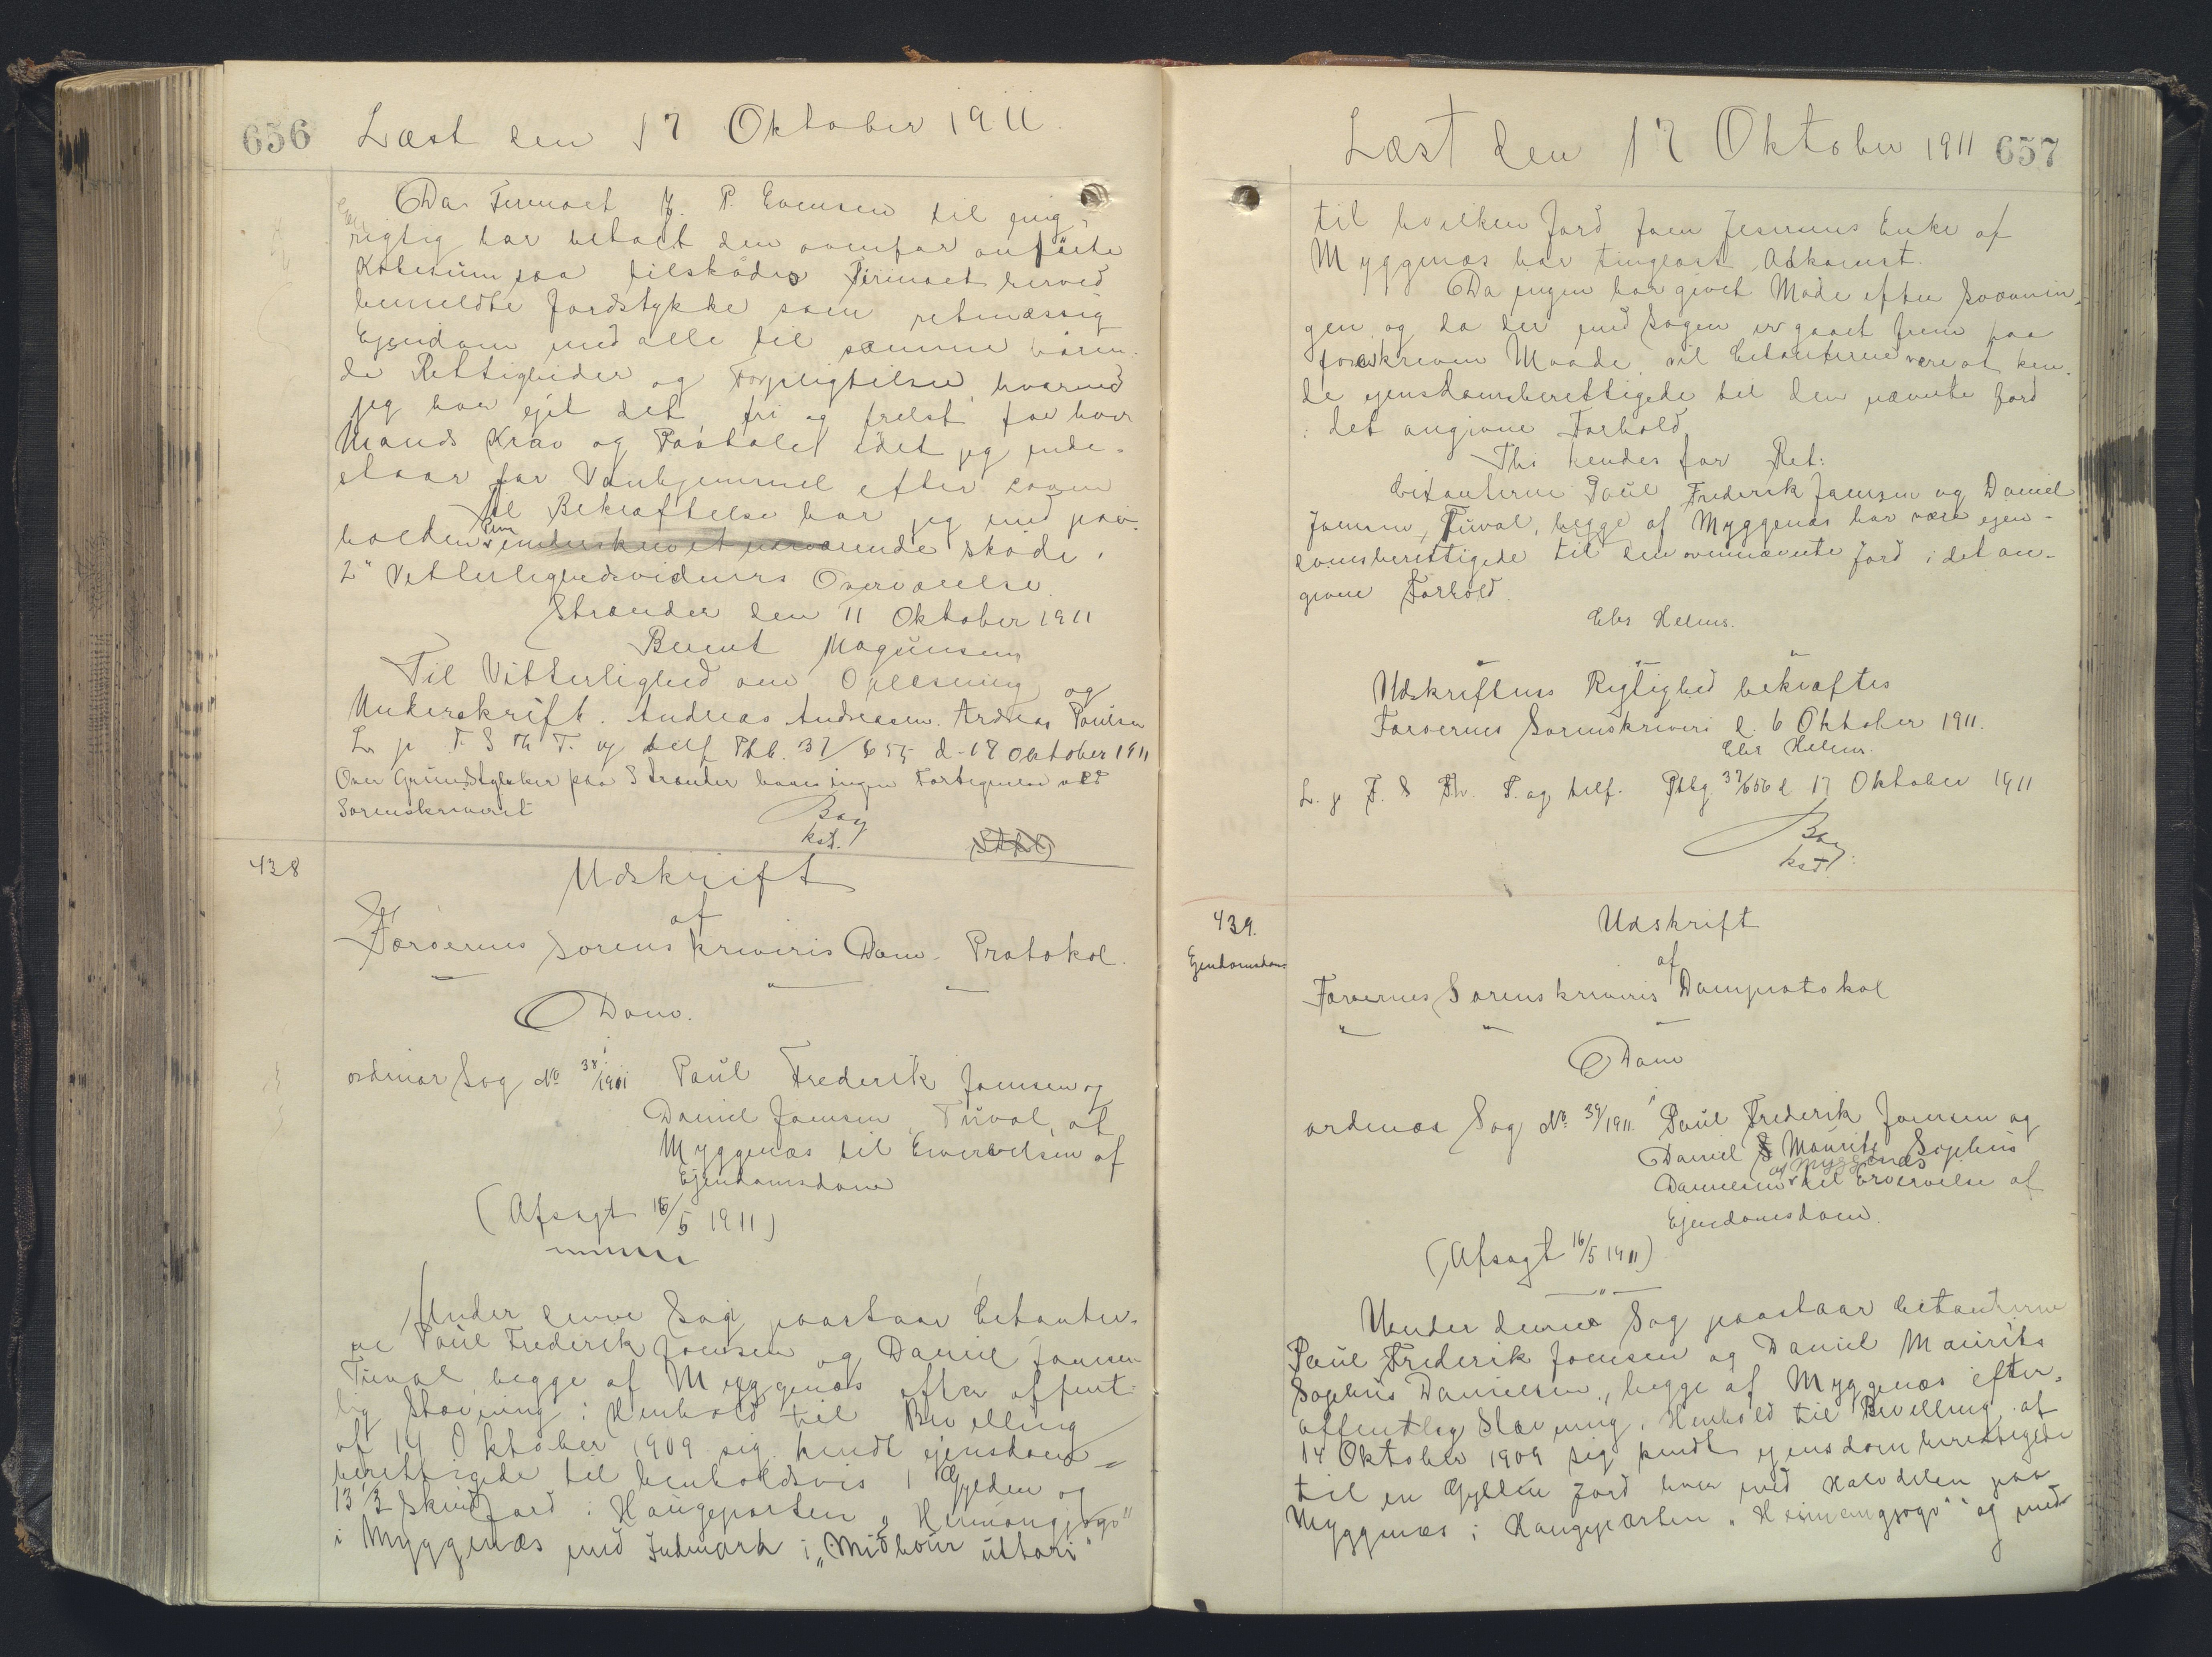 656 Læst den 17 Oktober 1911.
Da Firmaet J. P. Evensen til mig
rigtig har betalt den ovenfor anførte
Købesum saa tilskøder Firmaet herved
bemeldte Jordstykke som retmæssig
Ejendom med alle til samme høren-
de Rettigheder og Forpligtelser, hvormed
jeg har ejet det fri og frelst for hver
Mands Krav og Paatale idet jeg inde-
staar for Vanhjemmel efter Loven
Til Bekræftelse har jeg med paa-
holden Pen underskrevet nærværende Skøde i
2" Vitterlighedsvidners Overværelse.
Strænder den 11 Oktober 1911
Bernt Magnusen
Til Vitterlighed om Oplæsning og
Underskrift. Andreas Andreasen. Andreas Poulsen
L. p. F. S Th T. og tilf Ptb. 37/655 d. 17 Oktober 1911
Over Grundstykker paa Strænder haves ingen Fortegnelse ved
Sorenskriveriet
Bay
kst.
438
Udskrift
af
Færøernes Sorenskriveris Dom-Protokol.
Dom.
ordinær Sag No 38/1911 Poul Frederik Joensen og
Daniel Joensen, Tuval, af
Myggenæs til Erhvervelsen af
Ejendomsdom
(Afsagt 16/5 1911)
Under denne Sag paastaar Citanter-
ne Poul Frederik Joensen og Daniel Joensen
Tuval, begge af Myggenæs efter offent-
lig Stævning i Henhold til Bevilling
af 14 Oktober 1909 sig kendt ejensdoms-
berettigede til henholdsvis 1 Gylden og
13 1/3 Skind Jord i Haugeparten "Heimangjogv"
i Myggenæs med Indmark i "Miðhour uttari"
Læst den 17 Oktober 1911 657
til hvilken Jord Joen Jesunus Enke af
Myggenæs har tinglæst Adkomst.
Da ingen har givet Møde efter Stævnin-
gen og da der med Sagen er gaaet frem paa
foreskreven Maade, vil Citanterne være at ken-
de ejensdomsberettigede til den nævnte Jord
i det angivne Forhold
Thi kendes for Ret:
Citanterne Poul Frederik Joensen og Daniel
Joensen, Tuval, begge af Myggenæs bør være ejen-
domsberettigede til den ovennævnte Jord i det an-
givne Forhold.
Chr Helms.
Udskriftens Rigtighed bekræftes
Færøernes Sorenskriveri d. 6 Oktober 1911.
Chr Helms.
L. p F. S Th. T. og tilf. Ptbg. 37/656 d 17 Oktober 1911
Bay
kst.
439.
Ejendomsdom
Udskrift
af
Færøernes Sorenskriveris Domprotokol
Dom
ordinær Sag No. 39/1911 Poul Frederik Joensen og
Daniel Maurits Sophus
af Myggenæs
Danielsen til Erhvervelse af
Ejendomsdom.
(Afsagt 16/5 1911)
Under denne Sag paastaar Citanterne
Poul Frederik Joensen og Daniel Maurits
Sophus Danielsen, begge af Myggenæs efter
offentlig Stævning i Henhold til Bevilling af
14 Oktober 1909 sig kendt ejensdomsberettigede
til en Gylden Jord hver med Halvdelen paa
Myggenæs i Haugeparten "Heimangjogv" og med